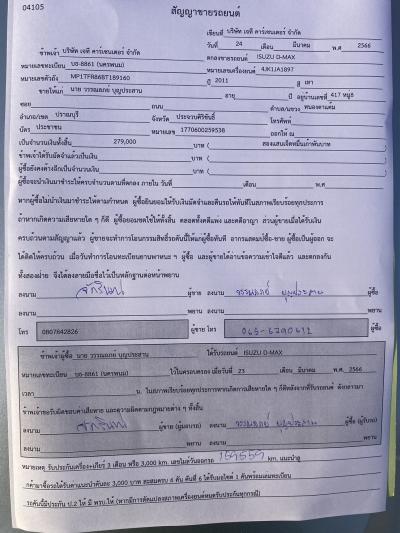 04105
สัญญาขายรถยนต์
เขียนที่ บริษัท เจที คาร์เซนเตอร์ จำกัด
วันที่ 24 เดือน มีนาคม พ.ศ 2566
ข้าพเจ้า บริษัท เจที คาร์เซนเตอร์ จำกัด ตกลงขายรถยนต์ ISUZU D-MAX
หมายเลขทะเบียน บอ-8861 (นครพนม) หมายเลขเครื่องยนต์ 4JK1JA1897
หมายเลขตัวถัง MP1TFR86BT189160 ปี 2011 สี เทา
ขายให้แก่ นาย วรรณลภย์ บุญประสาน อายุ ปี อยู่บ้านเลขที่ 417 หมู่8
ซอย ถนน ตำบล/แขวง หนองตาแต้ม
อำเภอ/เขต ปราณบุรี จังหวัด ประจวบคีรีขันธ์ โทรศัพท์
บัตร ประชาชน หมายเลข 1770600259538 ออกให้ ณ
เป็นจำนวนเงินทั้งสิ้น 279,000 บาท ( สองแสนเจ็ดหมื่นเก้าพันบาท
ข้าพเจ้าได้รับมัดจำแล้วเป็นเงิน บาท (
ผู้ซื้อยังคงค้างอีกเป็นจำนวนเงิน บาท (
ผู้ซื้อจะนำเงินมาชำระให้ครบจำนวนตามที่ตกลง ภายใน วันที่ เดือน พ.ศ.
หากผู้ซื้อไม่นำเงินมาชำระให้ตามกำหนด ผู้ซื้อยินยอมให้ริบเงินมัดจำและคืนรถให้ทันทีในสภาพเรียบร้อยทุกประการ
ถ้าหากเกิดความเสียหายใด ๆ ก็ดี ผู้ซื้อยอมชดใช้ให้ทั้งสิ้น ตลอดทั้งคดีแพ่ง และคดีอาญา ส่วนผู้ขายเมื่อได้รับเงิน
ครบถ้วนตามสัญญาแล้ว ผู้ขายจะทำการโอนกรรมสิทธิ์รถคันนี้ให้แก่ผู้ซื้อทันที อากรแสตมป์ซื้อ-ขาย ผู้ซื้อเป็นผู้ออก จะ
ได้ติดให้ครบถ้วน เมื่อวันทำการโอนทะเบียนยานพาหนะ ฯ ผู้ซื้อ และผู้ขายได้อ่านข้อความเข้าใจดีแล้ว และตกลงกัน
ทั้งสองฝ่าย จึงได้ลงลายมือชื่อไว้เป็นหลักฐานต่อหน้าพยาน
ลงนาม ผู้ขาย ลงนาม วรรณลภย์ บุญประสาน ผู้ซื้อ
ลงนาม พยาน ลงนาม พยาน
โทร 0807842826 ผู้ขาย โทร ผู้ซื้อ
ข้าพเจ้าผู้ซื้อ นาย วรรณลภย์ บุญประสาน ได้รับรถยนต์ ISUZU D-MAX
หมายเลขทะเบียน บอ-8861 (นครพนม) ไว้ในครอบครอง เมื่อวันที่ 23 เดือน มีนาคม พ.ศ. 2566
เวลา น. ในสภาพเรียบร้อยทุกประการหากเกิดการเสียหายใด ๆ ก็ดีหลังจากที่รับรถยนต์ ดังกล่าวมา
ข้าพเจ้าขอรับผิดชอบค่าเสียหาย และความผิดตามกฎหมายต่าง ๆ ทั้งสิ้น
ลงนาม ผู้ขาย (ผู้มอบรถ) ลงนาม วรรณลภย์ บุญประสาน ผู้ซื้อ (ผู้รับรถ)
ลงนาม พยาน ลงนาม พยาน
หมายเหตุ รับประกันเครื่อง+เกียร์ 3 เดือน หรือ 3,000 km. เลขไมล์วันออกรถ 159559 km. แนะนำลู
กค้ามาซื้อรถได้รับค่าแนะนำคันละ 3,000 บาท สะสมครบ 4 คัน คันที่ 6 ได้รับมอไซค์ 1 คันพร้อมเล่มทะเบียน
รถคันนี้มีประกัน ป.2 ให้ มี พรบ.ให้ (หากมีการดัดแปลงสภาพเครื่องยนต์หมดรับประกันทุกกรณี)